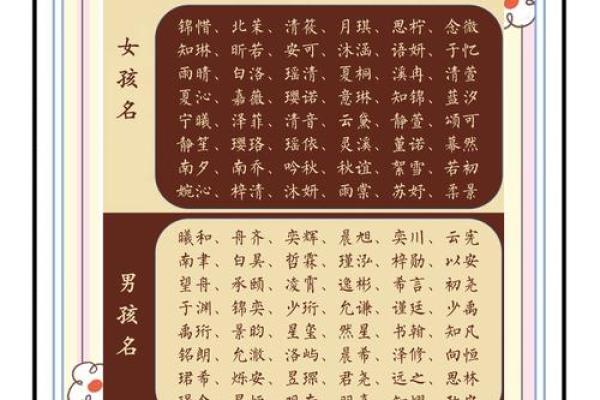 女孩名
锦惜、北茉、清筱、月琪、思柠、念微
知琳、昕若、安可、沐涵、语妍、于忆
雨晴、白洛、瑶清、夏桐、溪冉、清萱
夏沁、嘉薇、璎诺、意琳、知锦、蓝汐
宁曦、泽菲、清音、云黛、静萱、颂可
静笙、璎珞、瑶依、灵溪、堇诺、慕然
南夕、南乔、吟秋、秋谊、絮雪、若初
婉沁、梓清、沐妍、雨棠、苏妤、柔景
男孩名
曦和、舟齐、奕辉、晨旭、奕川、云宪
南聿、白昊、哲霖、瑾泓、梓勋、以安
望舟、承颐、凌霄、逸彬、希言、初尧
于渊、锦奕、少珩、允谦、谨廷、少禹
禹珩、景昀、星玺、然星、书翰、知凡
铭朗、允澈、洛屿、晨希、泽修、向恒
珺希、烁安、昱琛、君尧、远之、思林